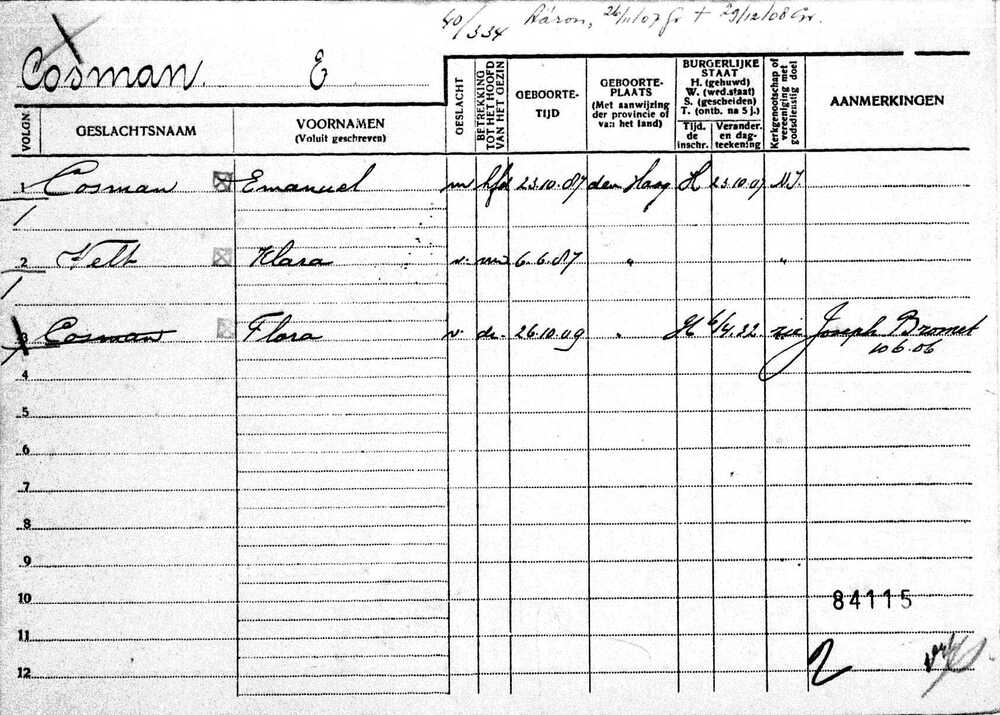 40/334 Aäron, 26/11/07 Gr + 29/12/08 Gr.
Cosman. E
VOLGN.
GESLACHTSNAAM
VOORNAMEN
(Voluit geschreven)
GESLACHT
BETREKKING TOT HET HOOFD VAN HET GEZIN
GEBOORTE-
TIJD
GEBOORTE-
PLAATS
(Met aanwijzing
der provincie of
van het land)
BURGERLIJKE
STAAT
H. (gehuwd)
W. (wed.staat)
S. (gescheiden)
T. (ontb. na 5 j.)
Tijd.
de
inschr.
Verander.
en dag-
teekening
Kerkgenootschap of vereeniging met godsdienstig doel
AANMERKINGEN
1 Cosman Emanuel m hfd 23.10.87 den Haag H 23.10.07 N.I.
1
2 Velt Klara v. 6.6.87 " "
1
3 Cosman Flora v de. 26.10.09 " H 6/4.32 zie Joseph Bromet
10.6.06
4
5
6
7
8
9
10
84115
11
12
2